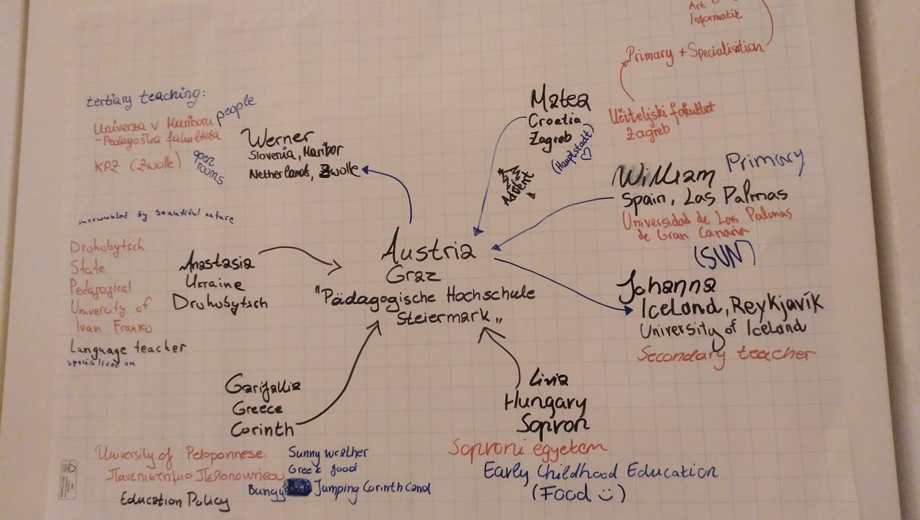 Art &
Informatik
Primary + Specialisation
Učiteljski fakultet
Zagreb
tertiary teaching:
people
Univerza v Mariboru
- Pedagoška fakulteta
KPZ (Zwolle)
open
rooms
Werner
Slovenia, Maribor
Netherlands, Zwolle
Matea
Croatia
Zagreb
(Hauptstadt)
Advent
William Primary
Spain, Las Palmas
Universidad de Las Palmas
de Gran Canaria
(SUN)
surrounded by beautiful nature
Drohobytsch
State
Pedagogical
University of
Ivan Franko
Language teacher
Anastasia
Ukraine
Drohobytsch
Austria
Graz
"Pädagogische Hochschule
Steiermark"
Johanna
Iceland, Reykjavík
University of Iceland
Secondary teacher
Garifallia
Greece
Corinth
Livia
Hungary
Sopron
University of Peloponnese
Πανεπιστήμιο Πελοποννήσου
Education Policy
Sunny weather
Greek food
Bungy Jumping Corinth Canal
Soproni egyetem
Early Childhood Education
(Food ☺)